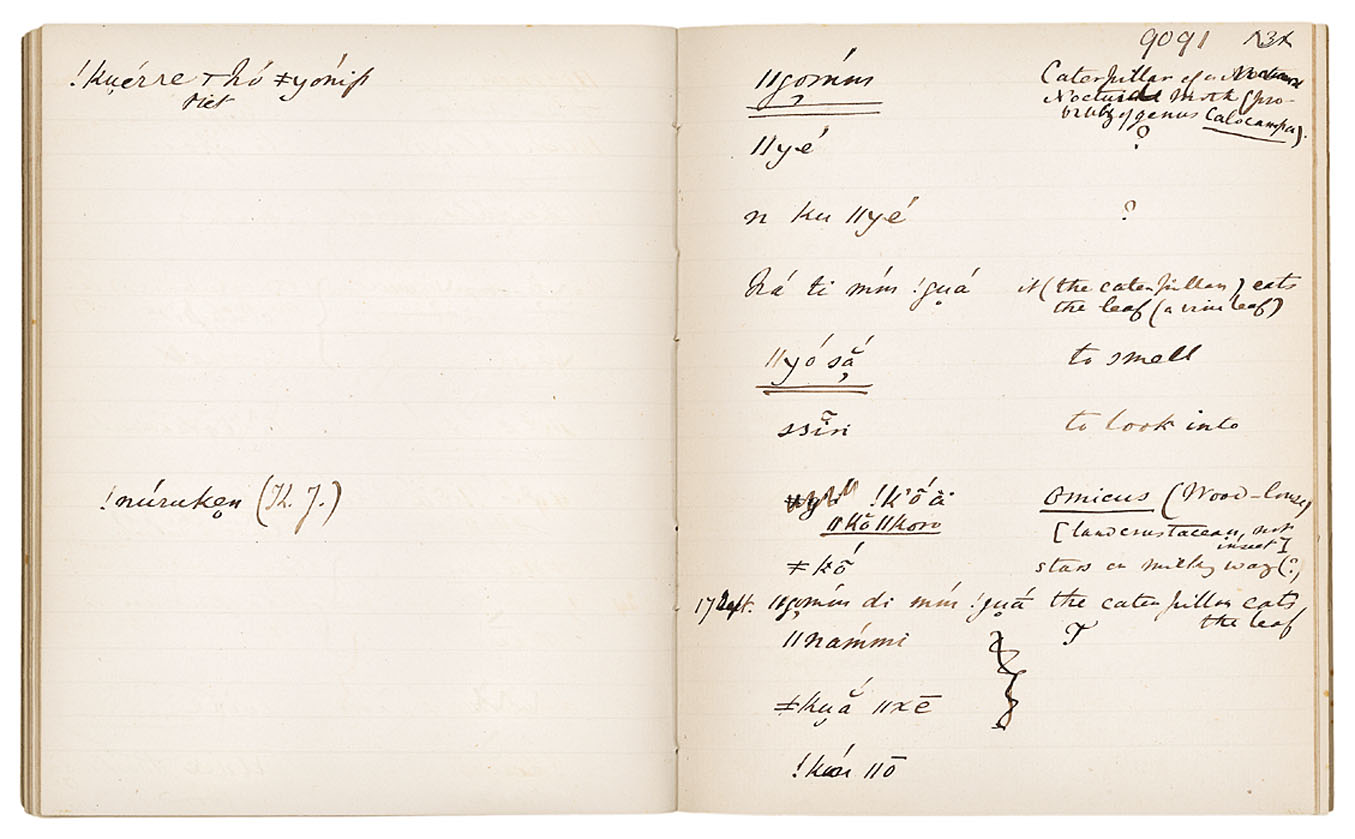 !kuérre hó ≠yónip
Piet
!núruken (K. J.)
9091
ǁgomún Caterpillar of a
Noctuid Moth (pro-
bably of genus Calocampa).
ǁyé ?
n ku ǁyé ?
há ti mún !guá it (the caterpillar) eats
the leaf (a vine leaf)
ǁyó sá to smell
to look into
!k'óä omicus (Wood-louse)
ǁkŏǁkoro [land crustacean, not
insect]
≠kó stars in milky way (?)
17 Sept. ǁgomún di mún !guá the caterpillar eats
the leaf
ǁnámmi ?
≠kuá ǁxē
ǁō